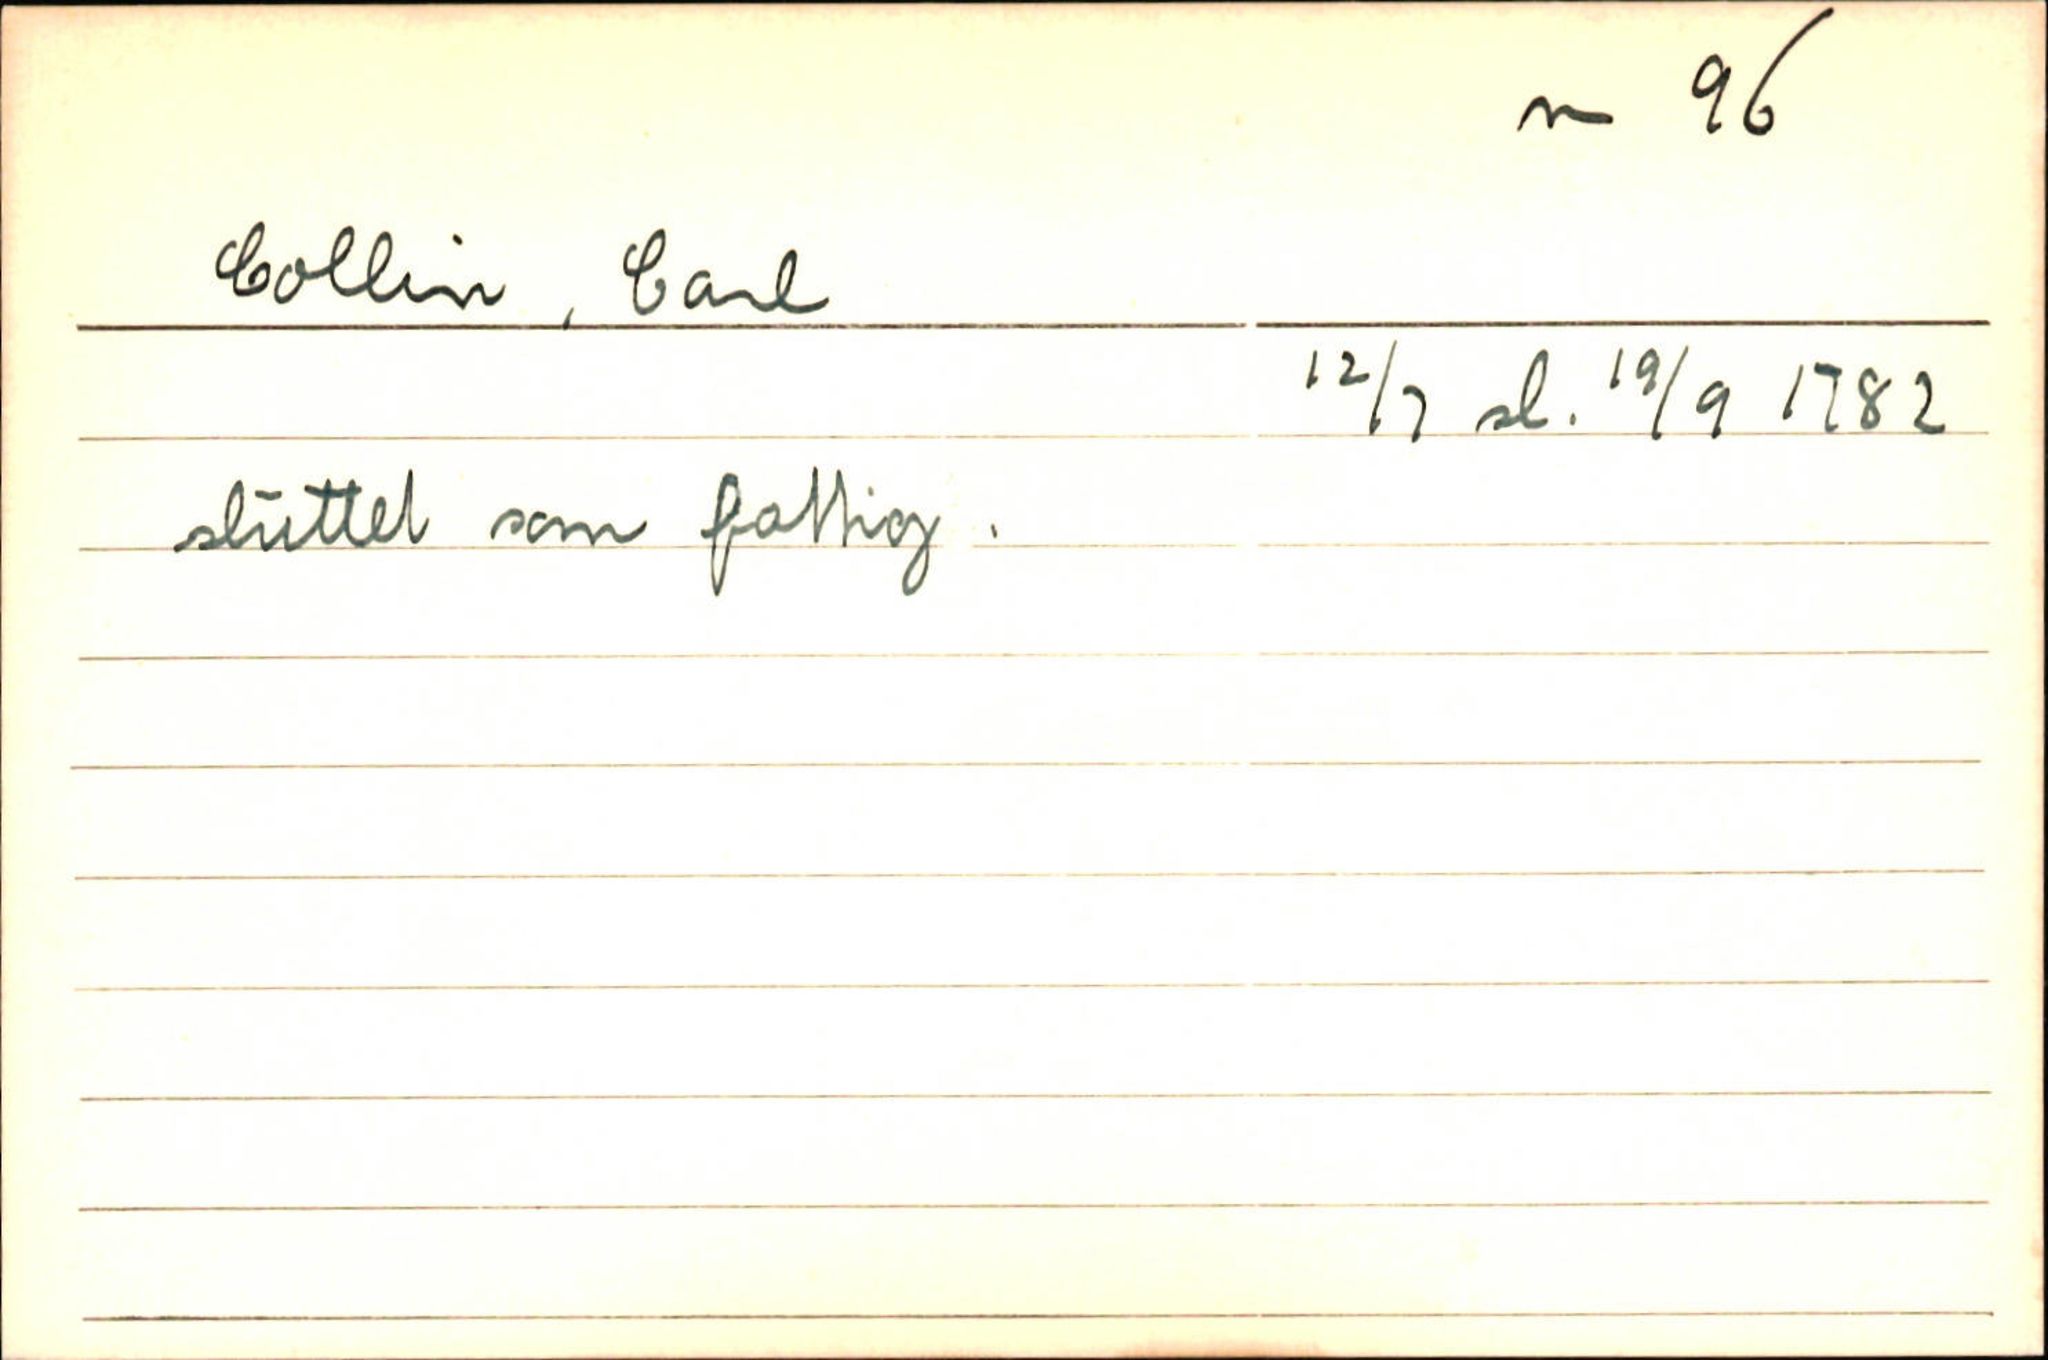 m 96
Collin, Carl
12/7 sl. 19/9 1782
sluttet som fattig.